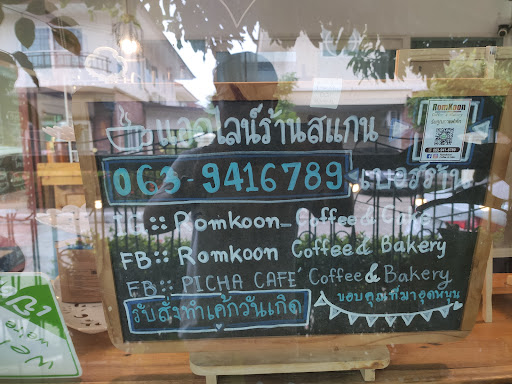 แอดไลน์ร้านสแกน
063-9416789 เบอร์ร้าน
IG:: Romkoon_Coffee & Cake
FB:: Romkoon Coffee & Bakery
FB:: PICHA CAFE' Coffee & Bakery
รับสั่งทำเค้กวันเกิด
ขอบคุณที่มาอุดหนุน
RomKoon